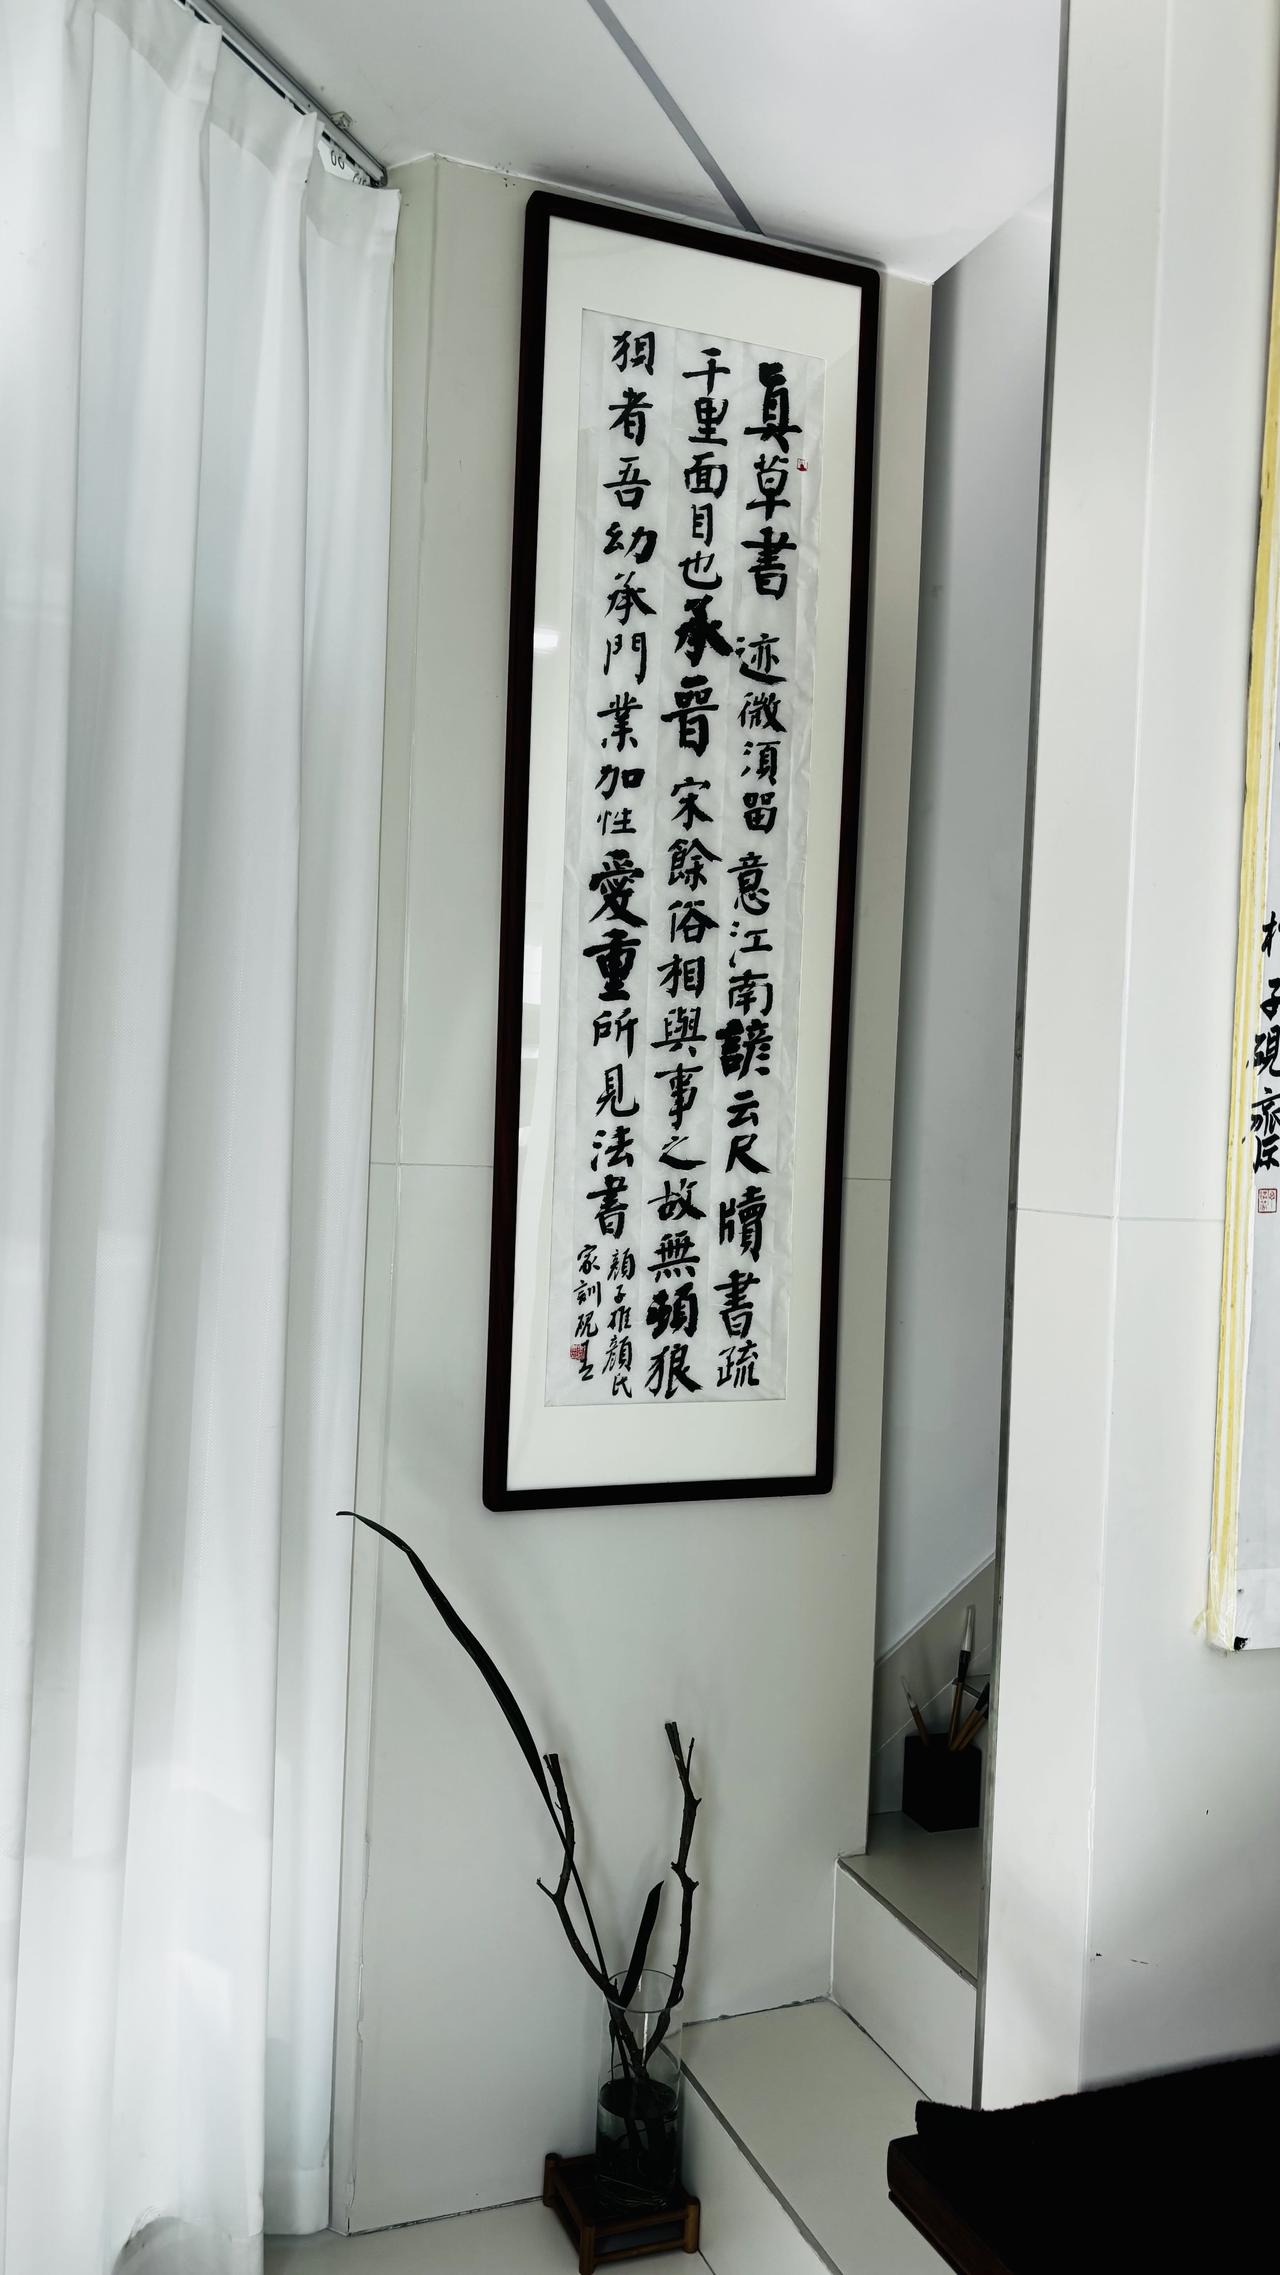 真草書迹微須留意江南諺云尺牘書疏
千里面目也承晉宋餘俗相與事之故無頓狼
狽者吾幼承門業加性愛重所見法書
顏子推顏氏
家訓硯
子硯齋